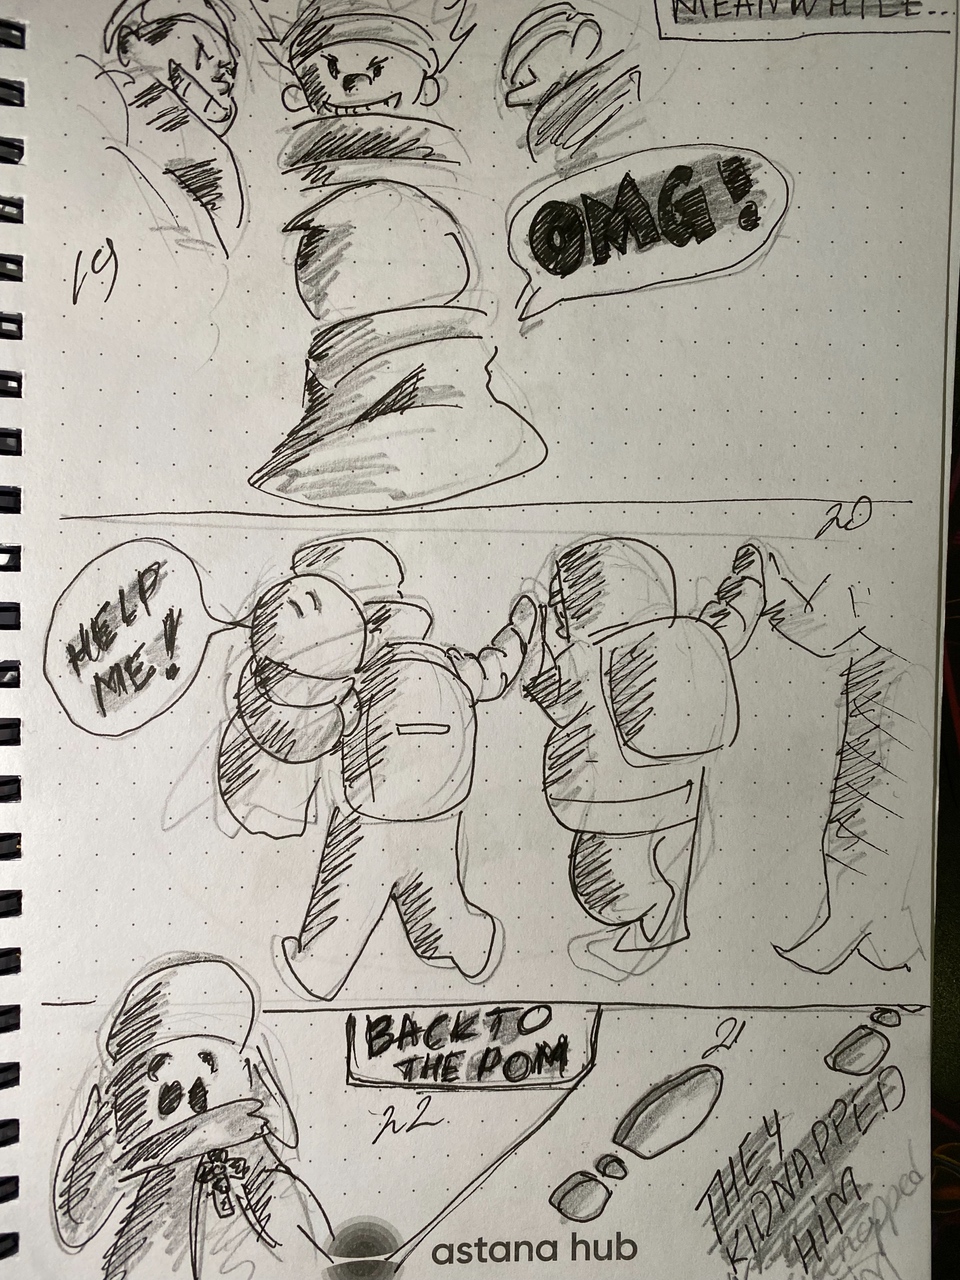 MEANWHILE...
19
OMG!
20
HELP
ME!
BACK TO
THE POM
22
21
THEY
KIDNAPPED
HIM
astana hub